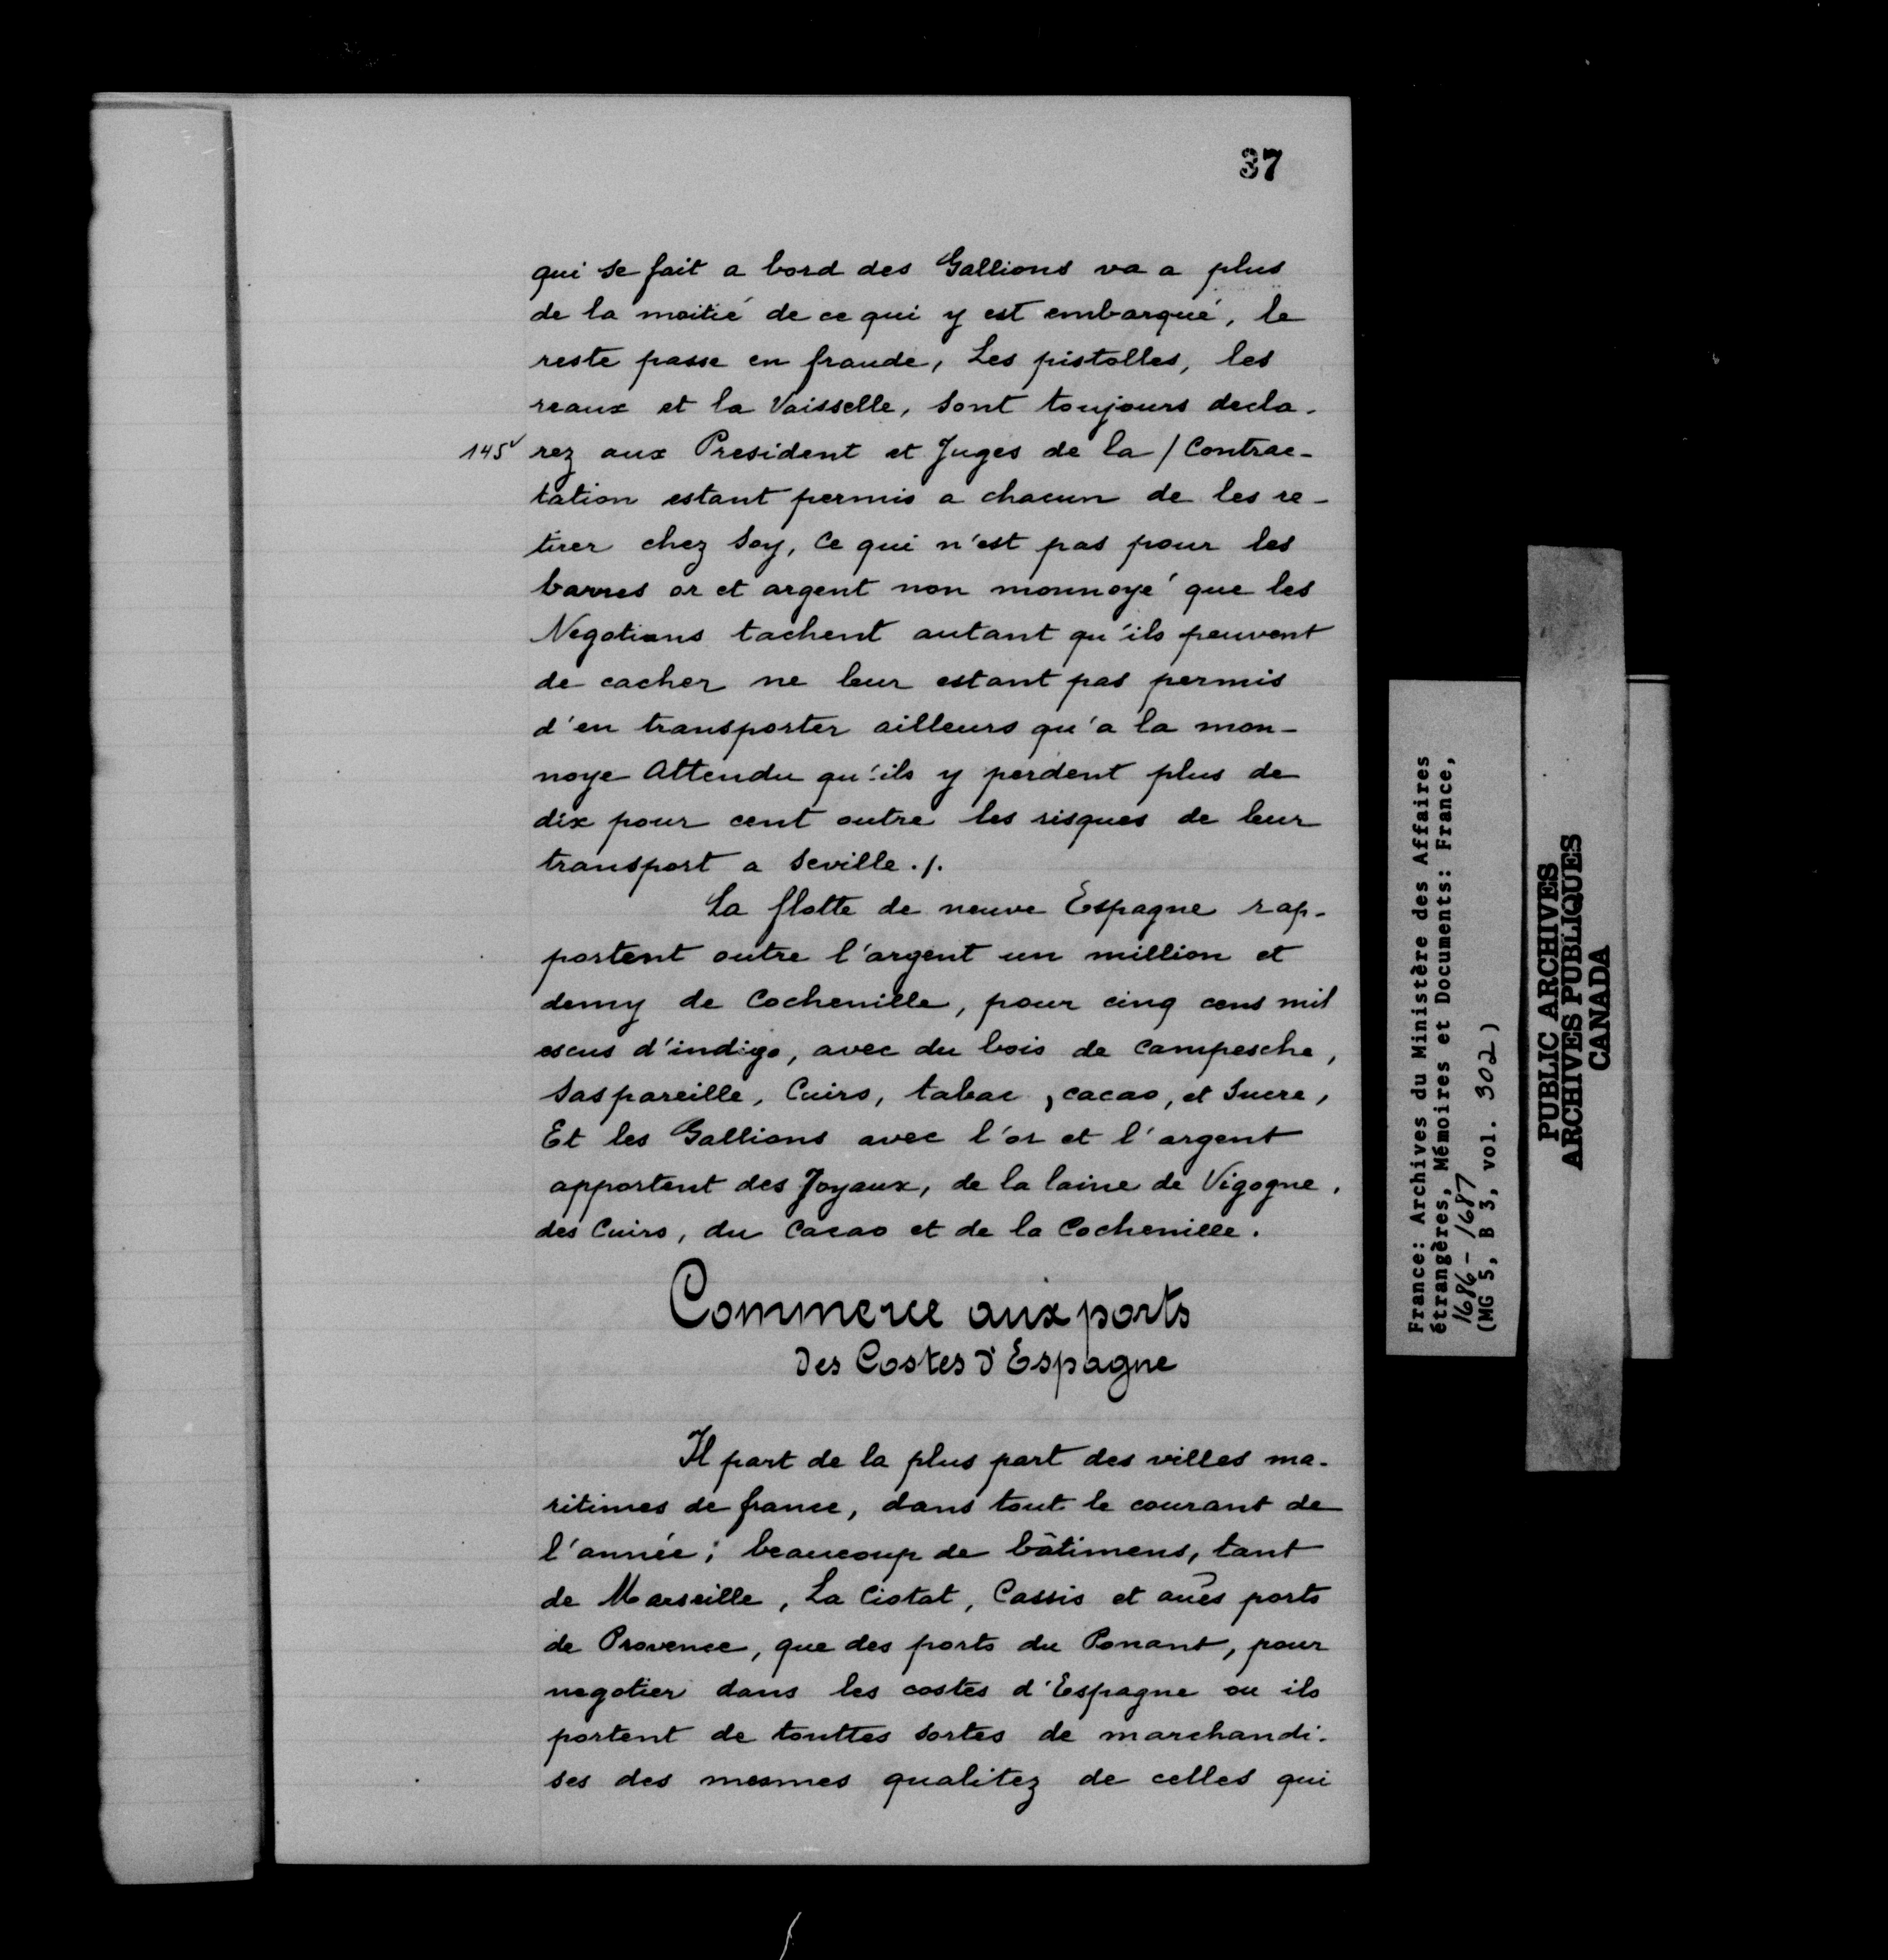 37
qui se fait a bord des Gallions va a plus
de la moitié de ce qui y est embarqué, le
reste passe en fraude, Les pistolles, les
reaux et la Vaisselle, sont toujours decla-
145v rez aux President et Juges de la / Contrac-
tation estant permis a chacun de les re-
tirer chez soy, Ce qui n'est pas pour les
barres or et argent non monnoyé que les
Negotians tachent autant qu'ils peuvent
de cacher ne leur estant pas permis
d'en transporter ailleurs qu'a la mon-
noye Attendu qu'ils y perdent plus de
dix pour cent outre les risques de leur
transport a Seville ./.
La flotte de neuve Espagne rap-
portent outre l'argent un million et
demy de Cochenille, pour cinq cens mil
escus d'indigo, avec du bois de Campesche,
Saspareille, Cuirs, tabac, cacao, et Sucre,
Et les Gallions avec l'or et l'argent
apportent des Joyaux, de la laine de Vigogne,
des Cuirs, du Cacao et de la Cochenille.
Commerce aux ports
Des Costes d'Espagne
Il part de la plus part des villes ma-
ritimes de france, dans tout le courant de
l'année; beaucoup de bâtimens, tant
de Marseille, La Ciotat, Cassis et aũes ports
de Provence, que des ports du Ponant, pour
negotier dans les costes d'Espagne ou ils
portent de touttes sortes de marchandi-
ses des mesmes qualitez de celles qui
France: Archives du Ministère des Affaires
étrangères, Mémoires et Documents: France,
1686-1687
(MG 5, B 3, vol. 302)
PUBLIC ARCHIVES
ARCHIVES PUBLIQUES
CANADA